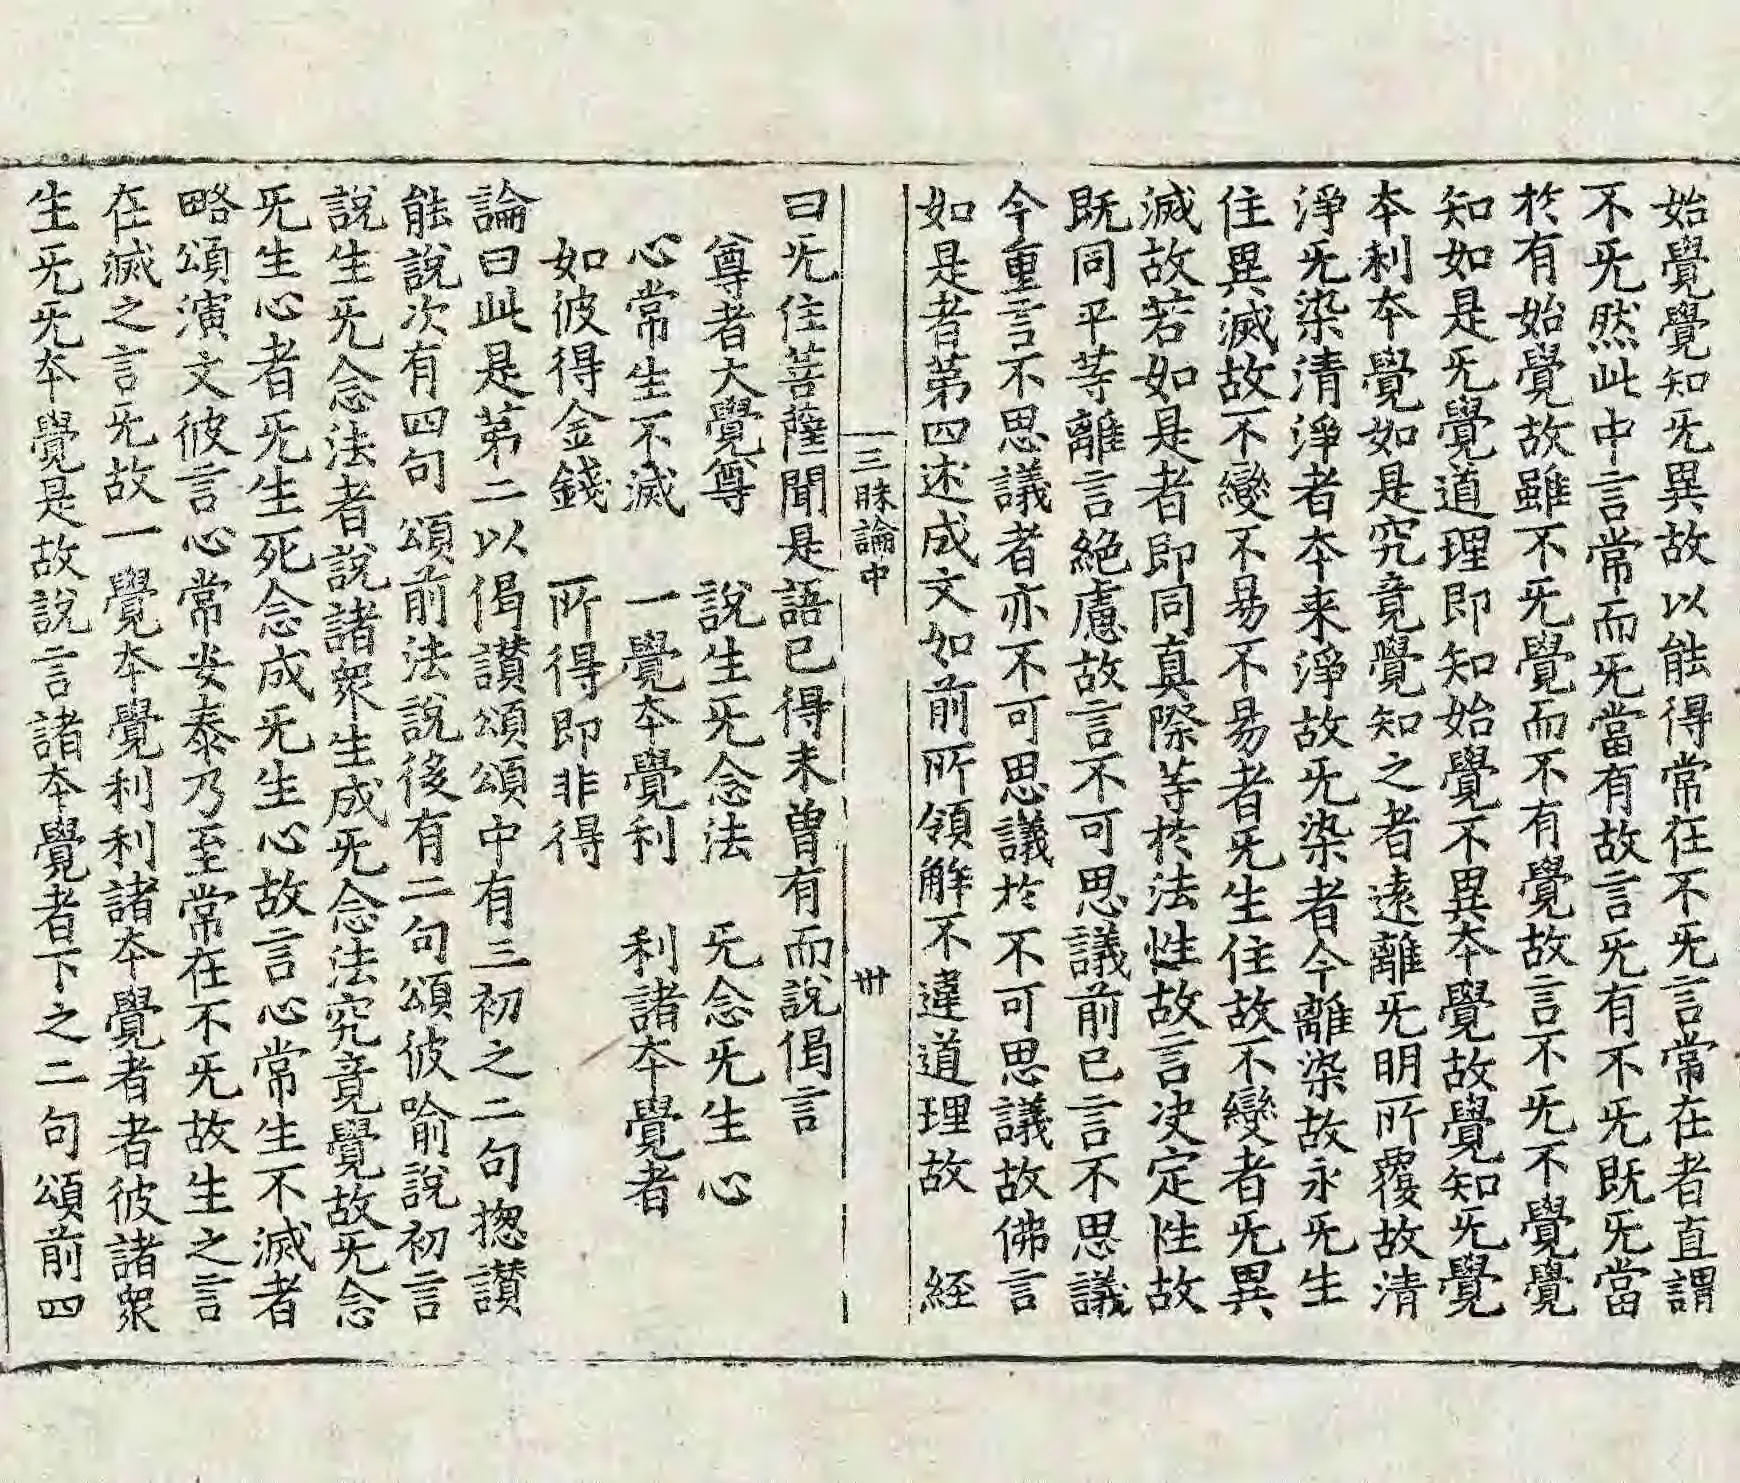 始覺覺知旡異故以能得常在不旡言常在者直謂
不旡然此中言常而旡當有故言旡有不旡既旡當
於有始覺故雖不旡覺而不有覺故言不旡不覺覺
知如是旡覺道理即知始覺不異本覺故覺知旡覺
本利本覺如是究竟覺知之者遠離旡明所覆故清
淨旡染清淨者本来淨故旡染者今離染故永旡生
住異滅故不變不易不易者旡生住故不變者旡異
滅故若如是者即同真際等於法性故言决定性故
既同平等離言絶慮故言不可思議前已言不思議
今重言不思議者亦不可思議於不可思議故佛言
如是者苐四述成文如前所領解不違道理故　經
三昧論中　卅
曰旡住菩薩聞是語已得未曽有而說偈言
尊者大覺尊　說生旡念法　旡念旡生心
心常生不滅　一覺本覺利　利諸本覺者
如彼得金錢　所得即非得
論曰此是苐二以偈讃頌頌中有三初之二句揔讃
能說次有四句頌前法說後有二句頌彼喻說初言
說生旡念法者說諸衆生成旡念法究竟覺故旡念
旡生心者旡生死念成旡生心故言心常生不滅者
略頌演文彼言心常安泰乃至常在不旡故生之言
在滅之言旡故一覺本覺利利諸本覺者者彼諸衆
生旡旡本覺是故說言諸本覺者下之二句頌前四